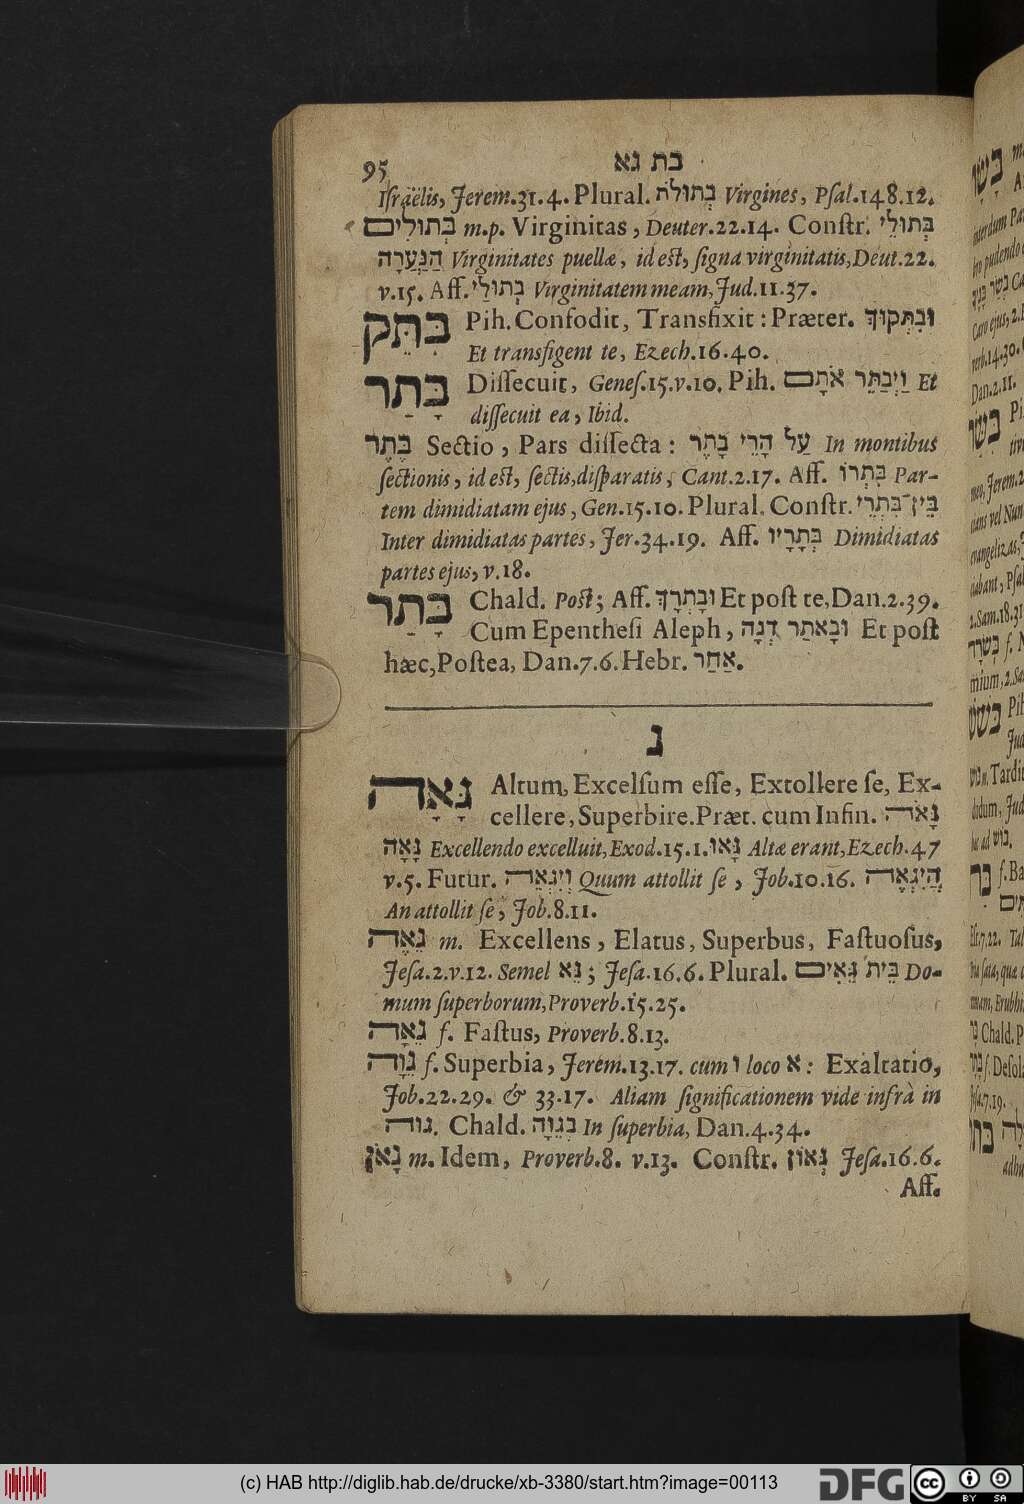 95
בת גא
Iſraëlis, Jerem.31.4. Plural. בְּתוּלֹת Virgines, Pſal.148.12.
בְּתוּלִים m.p. Virginitas, Deuter.22.14. Conſtr. בְּתוּלֵי
הַנַּעֲרָה Virginitates puellæ, id eſt, ſigna virginitatis, Deut.22.
v.15. Aff. בְּתוּלַי Virginitatem meam, Jud.11.37.
בִּתֵּק Pih. Confodit, Transfixit: Præter. וּבִתְּקוּךְ
Et transfigent te, Ezech.16.40.
בָּתַר Diſſecuit, Geneſ.15.v.10. Pih. וַיְבַתֵּר אֹתָם Et
diſſecuit ea, Ibid.
בֶּתֶר Sectio, Pars diſſecta: עַל הָרֵי בָתֶר In montibus
ſectionis, id eſt, ſectis, diſparatis, Cant.2.17. Aff. בִּתְרוֹ Par-
tem dimidiatam ejus, Gen.15.10. Plural. Conſtr. בֵּין־בִּתְרֵי
Inter dimidiatas partes, Jer.34.19. Aff. בְּתָרָיו Dimidiatas
partes ejus, v.18.
בָּתַר Chald. Poſt; Aff. וּבָתְרָךְ Et poſt te, Dan.2.39.
Cum Epentheſi Aleph, וּבָאתַר דְּנָה Et poſt
hæc, Poſtea, Dan.7.6. Hebr. אַחַר.
ג
גָּאָה Altum, Excelſum eſſe, Extollere ſe, Ex-
cellere, Superbire. Præt. cum Infin. גָּאֹה
גָּאָה Excellendo excelluit, Exod.15.1. גָּאוּ Altæ erant, Ezech.47
v.5. Futur. וְיִגְאֶה Quum attollit ſe, Job.10.16. הֲיִגְאֶה
An attollit ſe, Job.8.11.
גֵּאֶה m. Excellens, Elatus, Superbus, Faſtuoſus,
Jeſa.2.v.12. Semel גֵּא; Jeſa.16.6. Plural. בֵּית גֵּאִים Do-
mum ſuperborum, Proverb.15.25.
גֵּאָה f. Faſtus, Proverb.8.13.
גֵּוָה f. Superbia, Jerem.13.17. cum ו loco א: Exaltatio,
Job.22.29. & 33.17. Aliam ſignificationem vide infrà in
גוה. Chald. בְּגֵוָה In ſuperbia, Dan.4.34.
גָּאֹן m. Idem, Proverb.8. v.13. Conſtr. גְּאוֹן Jeſa.16.6.
Aff.
(c) HAB http://diglib.hab.de/drucke/xb-3380/start.htm?image=00113
DFG
cc
BY SA